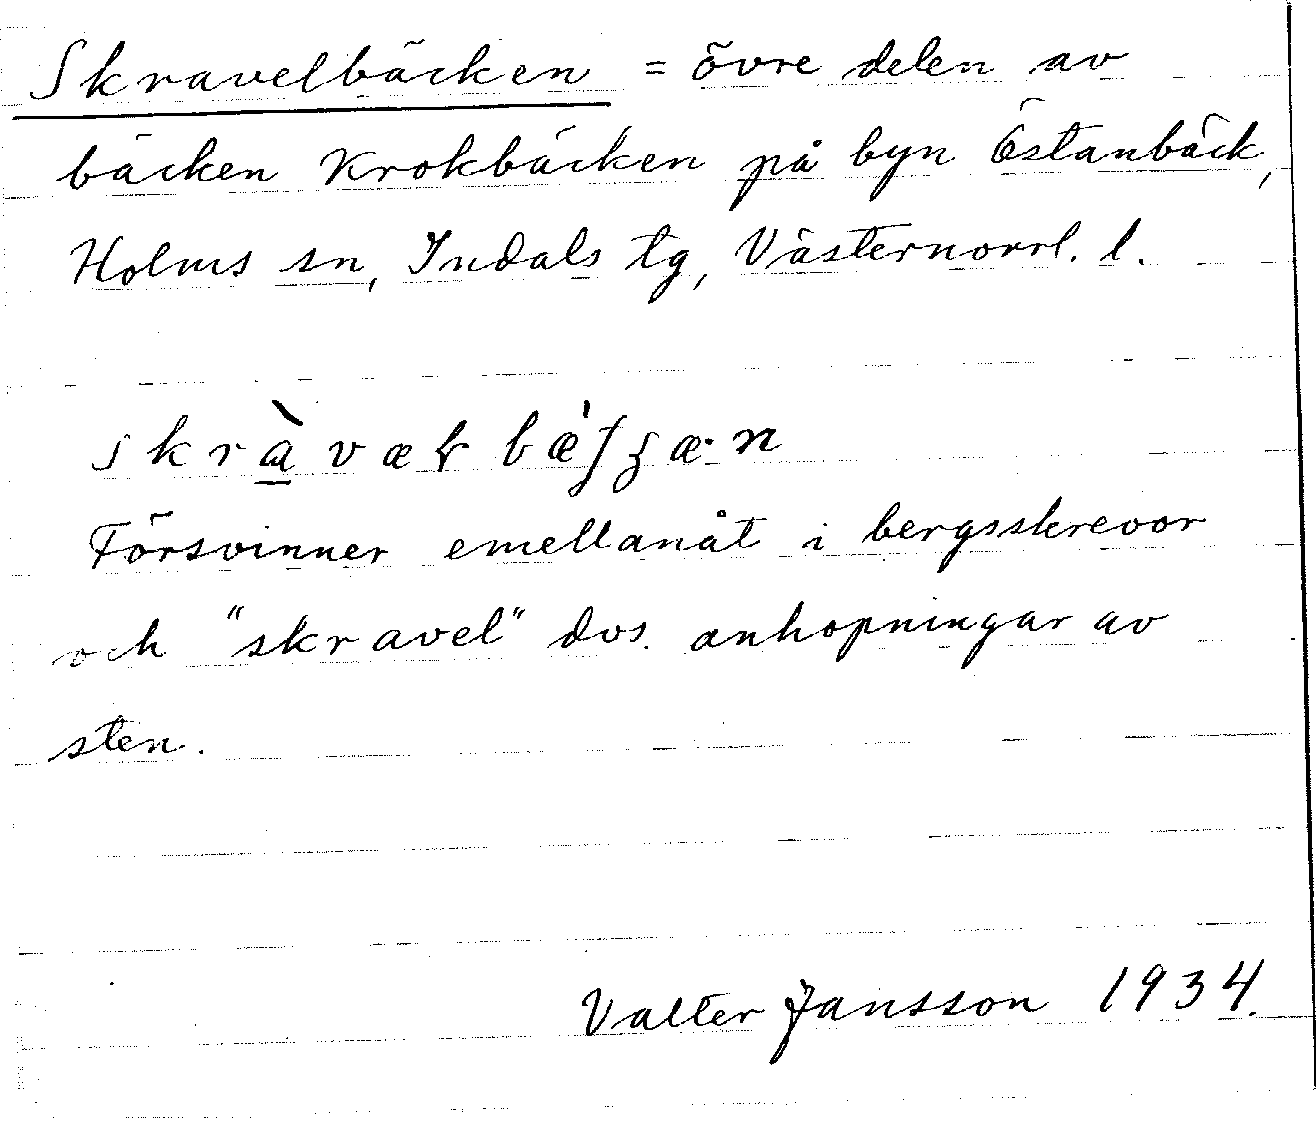 Skravelbäcken = övre delen av
bäcken Krokbäcken på byn Östanbäck,
Holms sn, Indals tg, Västernorrl. l.
Försvinner emellanåt i bergsskrevor
och "skravel" dvs. anhopningar av
sten.
Valter Jansson 1934.